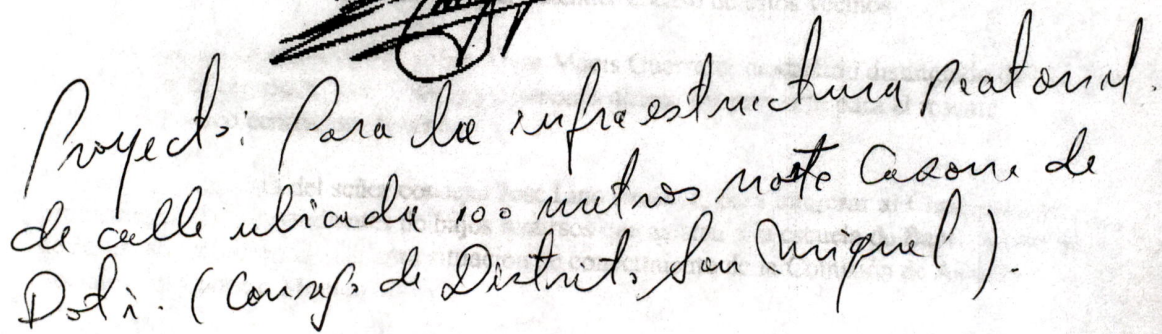 Proyecto: Para la infraestructura peatonal.
de calle ubicada 100 metros norte Casona de
Doti. (Consejo de Distrito San Miguel).